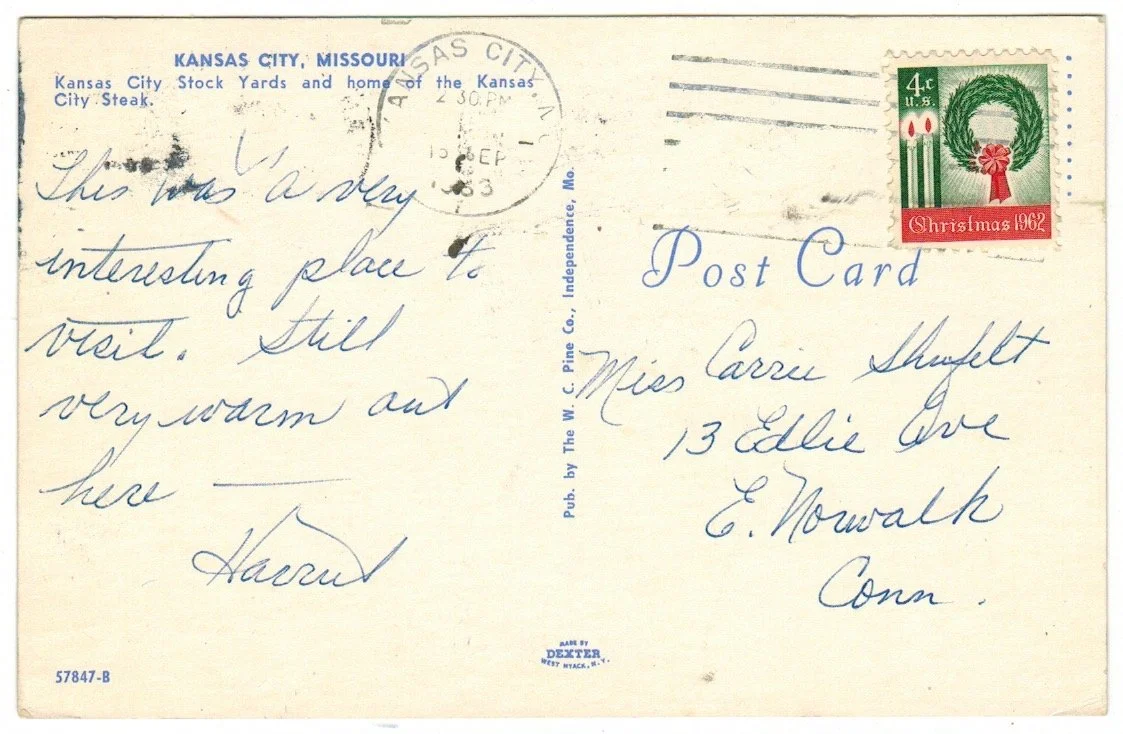 KANSAS CITY, MISSOURI
Kansas City Stock Yards and home of the Kansas
City Steak.
KANSAS CITY, M
2 30 PM
SEP
1963
4c
U.S.
Christmas 1962
This was a very
interesting place to
visit. Still
very warm out
here —
Harriet
Pub. by The W. C. Pine Co., Independence, Mo.
Post Card
Miss Carrie Shufelt
13 Edlie Ave
E. Norwalk
Conn.
MADE BY
DEXTER
WEST NYACK, N.Y.
57847-B